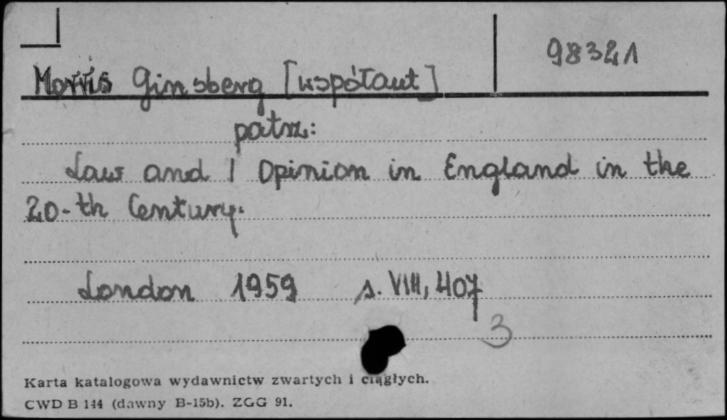 98321
Morris Ginsberg [współaut]
patrz:
Law and | Opinion in England in the
20-th Century.
London 1959 s. VIII, 407
3
Karta katalogowa wydawnictw zwartych i ciągłych.
CWD B 144 (dawny B-15b). ZGG 91.